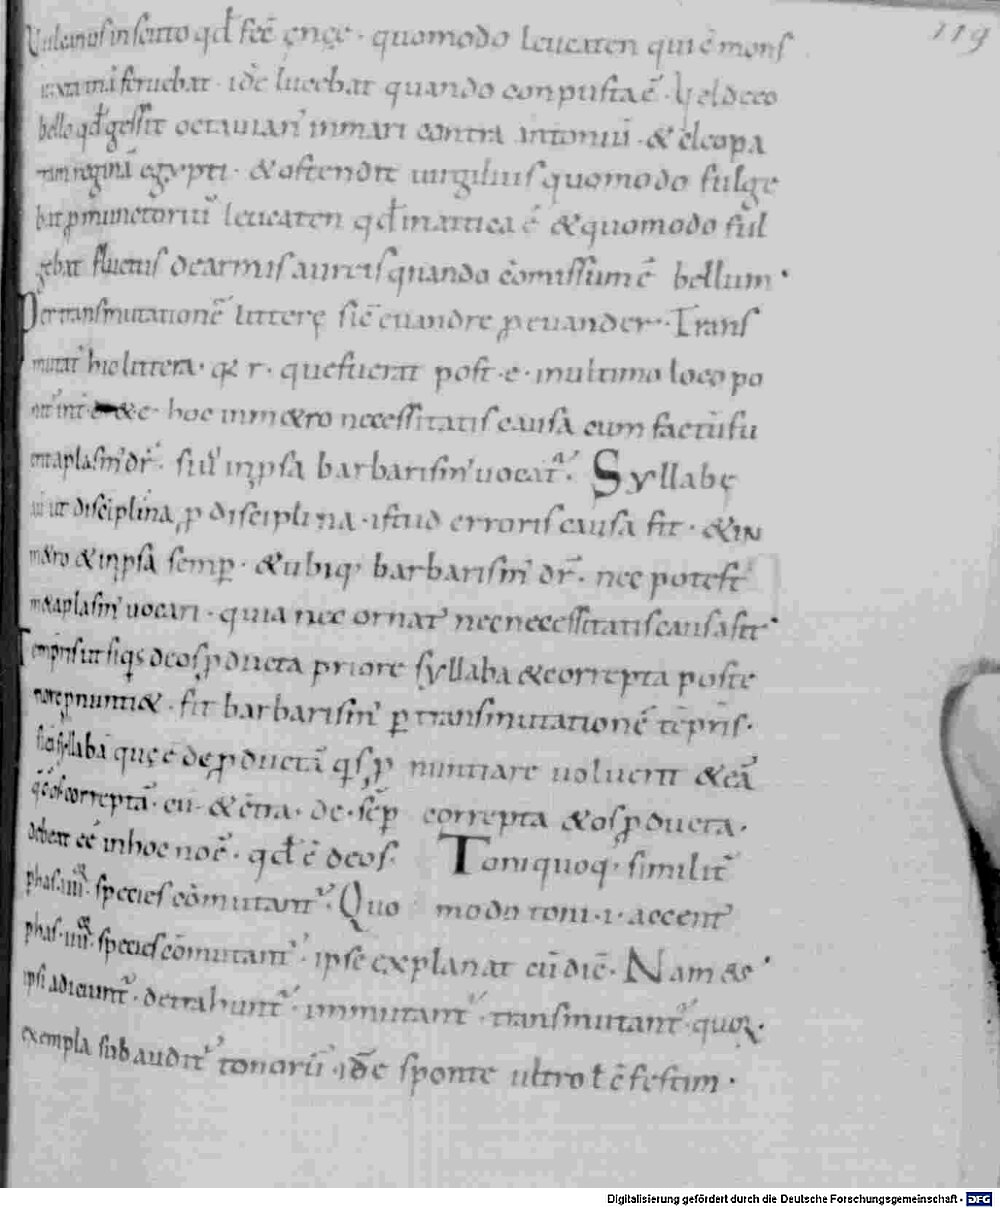 119
Vulcanus in scuto qđ fec̄ ęnęę · quomodo leucaten qui ē mons
feruebat · idē lucebat quando conpusta ē · Vel de eo
bello qđ gessit octauian' in mari contra antoniū · & cleopa
tram reginā egypti · & ostendit uirgilius quomodo fulge
bat ꝓmunctoriū leucaten qđ in attica ē & quomodo ful
gebat fluctus de armis aureis quando cōmissum ē bellum ·
Per transmutationē litterę sic̄ euandre ꝓ euander · Trans
mutat' hic littera · q; r · que fuerat post · e · in ultimo loco po
nit' int̄ & e · hoc in metro necessitatis causa cum factū fu
erit metaplasm' dr̄ · siū in ꝓsa barbarism' uocat' · Syllabę
ut disciplina ꝓ disciplina · istud erroris causa fit · & in
metro & in ꝓsa semꝑ · & ubiq; barbarism' dr̄ · nec potest
metaplasm' uocari · quia nec ornat' nec necessitatis causa fit ·
Temporis ut siqs deos ꝓducta priore syllaba & correpta poste
riore ꝓnuntiet · fit barbarism' ꝑ transmutationē tēpris ·
syllabā quę ē de ꝓductā qs ꝓnuntiare uoluerit & eā
correptā · cū · & c̄tra · de · sēꝑ correpta & os ꝓducta ·
debeat eē in hoc noē · qđ ē deos · Toni quoq; similit̄
phas · iiii · species cōmutant' · Quo modo toni · i · accent'
phas · iiii · species cōmutant' · ipse explanat cū dic̄ · Nam & '
ipsi adiciunt' · detrahunt' · inmutant' · transmutant' · quoꝝ ·
exempla subaudit' tonorū · idē sponte ultro ł ē festim ·
Digitalisierung gefördert durch die Deutsche Forschungsgemeinschaft - DFG